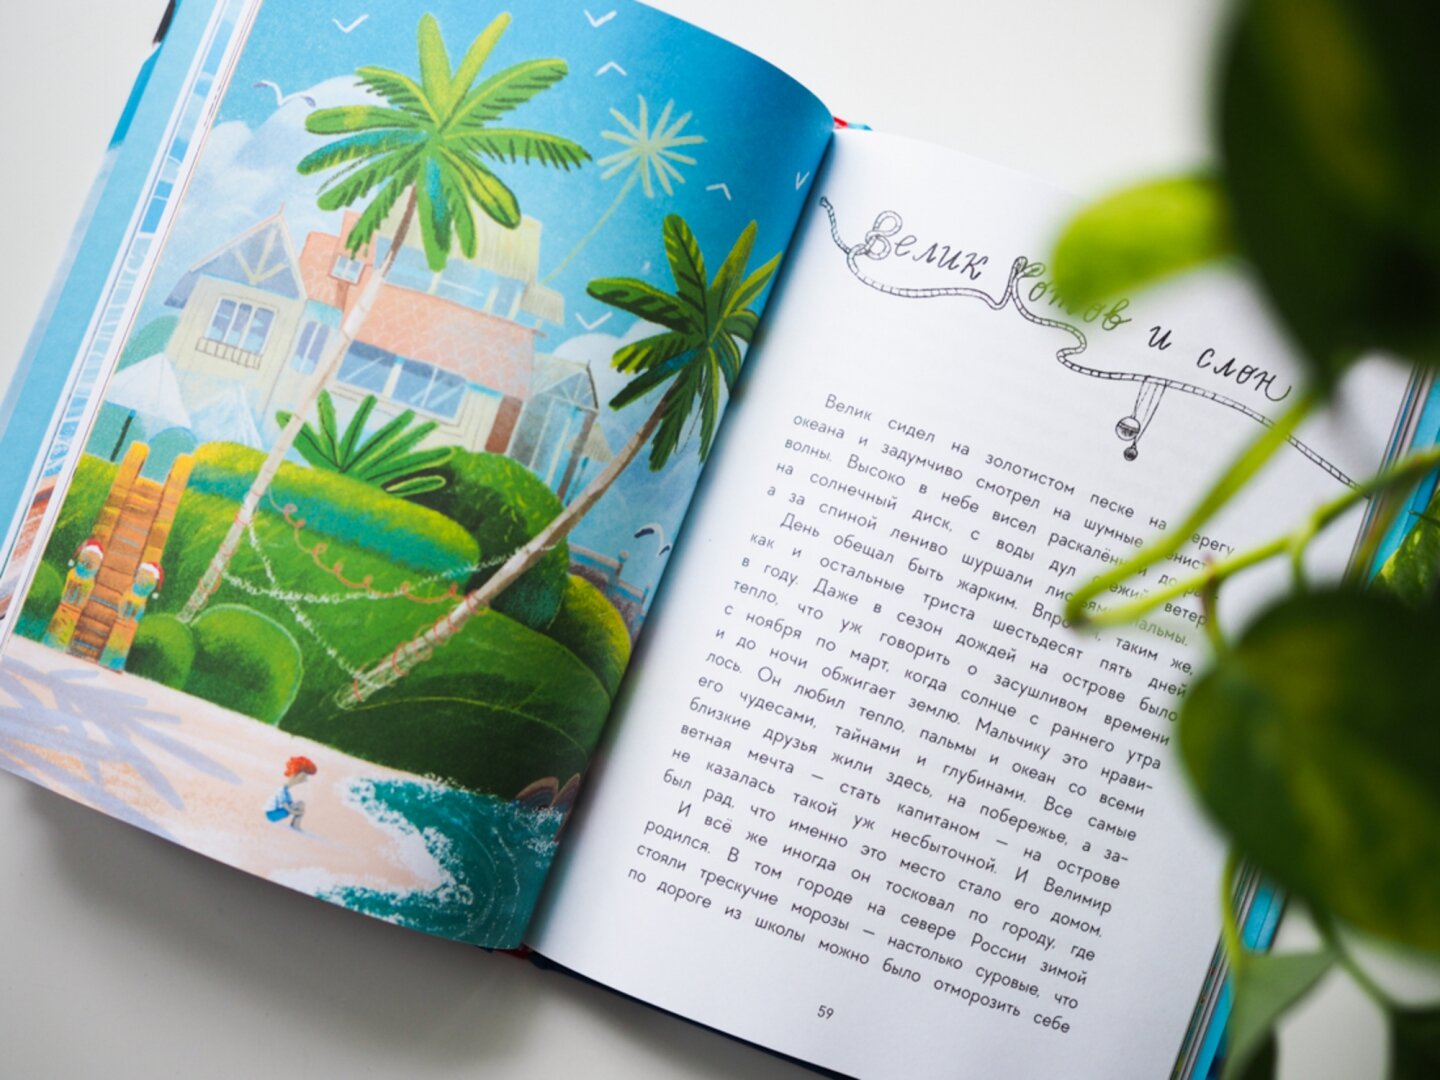 Велик Котов и слон
Велик сидел на золотистом песке на берегу
океана и задумчиво смотрел на шумные пенистые
волны. Высоко в небе висел раскалённый
на солнечный диск, с воды дул свежий ветер,
а за спиной лениво шуршали листьями пальмы.
День обещал быть жарким. Впрочем, таким же,
как и остальные триста шестьдесят пять дней
в году. Даже в сезон дождей на острове было
тепло, что уж говорить о засушливом времени
с ноября по март, когда солнце с раннего утра
и до ночи обжигает землю. Мальчику это нрави-
лось. Он любил тепло, пальмы и океан со всеми
его чудесами, тайнами и глубинами. Все самые
близкие друзья жили здесь, на побережье, а за-
ветная мечта — стать капитаном — на острове
не казалась такой уж несбыточной. И Велимир
был рад, что именно это место стало его домом.
И всё же иногда он тосковал по городу, где
родился. В том городе на севере России зимой
стояли трескучие морозы — настолько суровые, что
по дороге из школы можно было отморозить себе
59